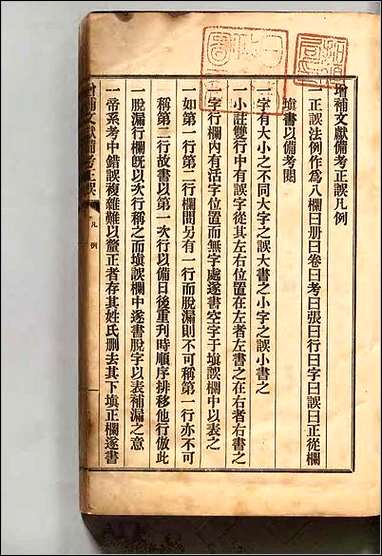 增補文獻備考正誤凡例
一正誤法例作爲八欄曰册曰卷曰考曰張曰行曰字曰誤曰正從欄
塡書以備考閱
一字有大小之不同大字之誤大書之小字之誤小書之
一小註雙行中有誤字從其左右位置在左者左書之在右者右書之
一字行欄內有活字位置而無字處遂書空字于塡誤欄中以表之
一如第一行第二行欄間另有一行而脫漏則不可稱第一行亦不可
稱第二行故書以第一次行以備日後重刊時順序排移他行倣此
一脫漏行欄旣以次行稱之而塡誤欄中遂書脫字以表補漏之意
一帝系考中錯誤複雜難以釐正者存其姓氏刪去其下塡正欄遂書
增補文獻備考正誤
凡例